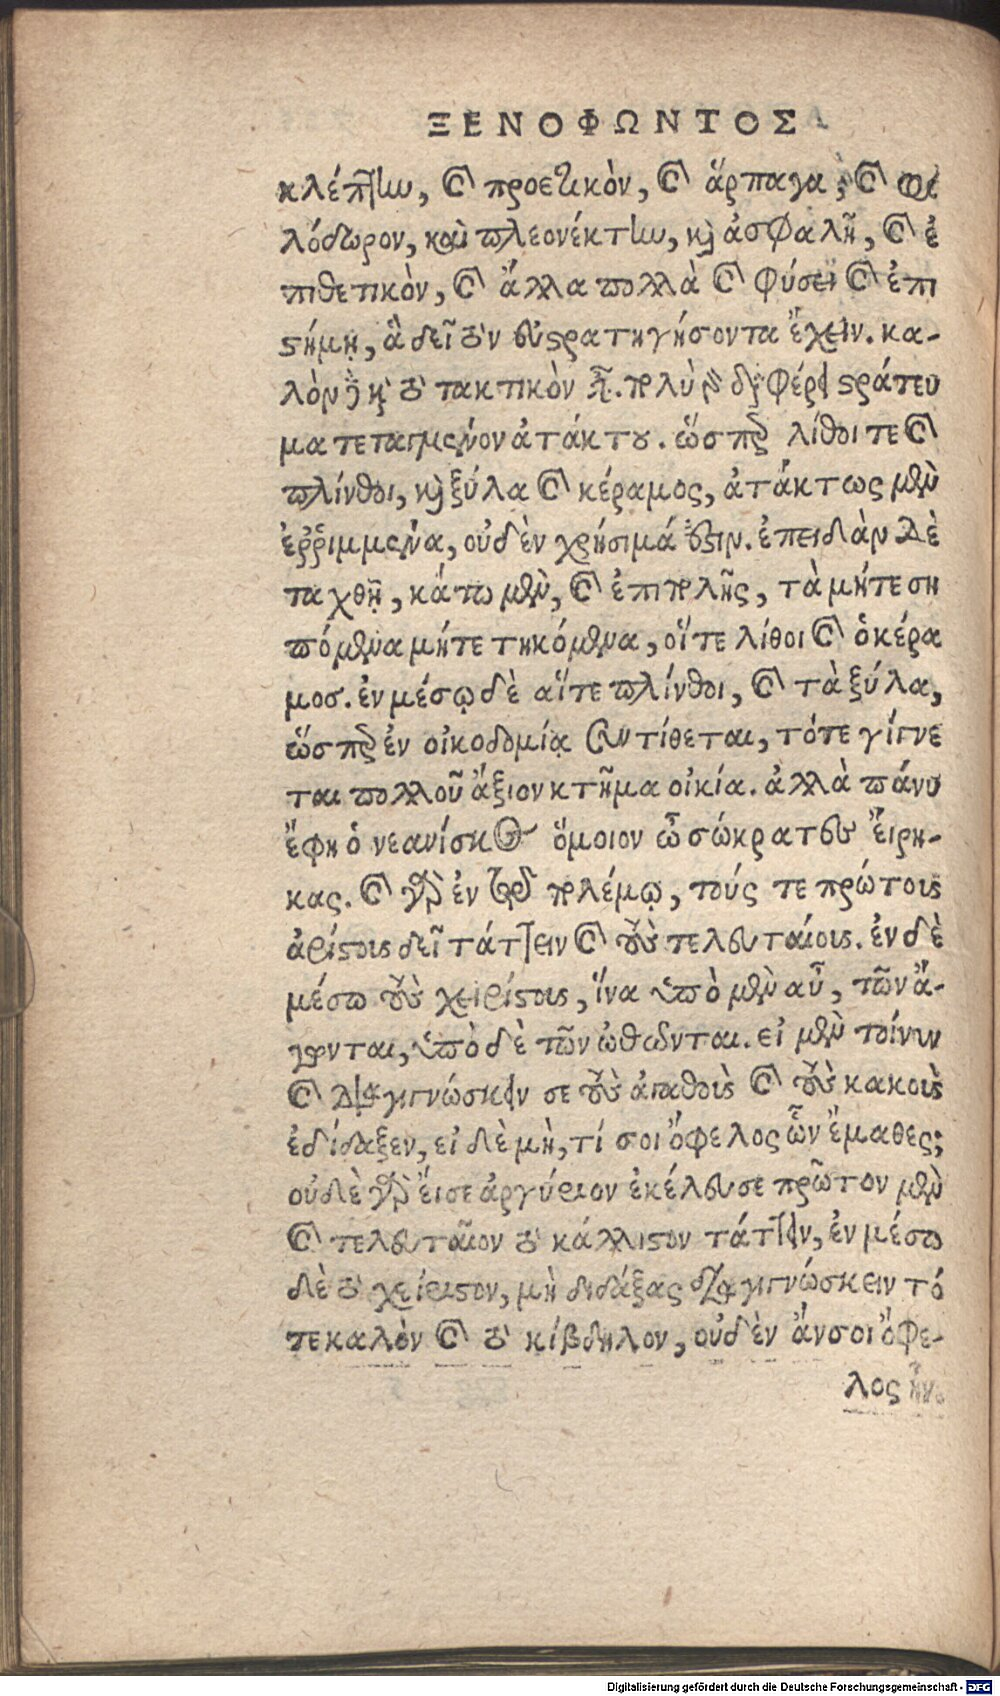 ΞΕΝΟΦΩΝΤΟΣ
κλέπτην, καὶ προετικὸν, καὶ ἅρπαγα, καὶ φι
λόδωρον, καὶ πλεονέκτην, καὶ ἀσφαλῆ, καὶ ἐ
πιθετικὸν, καὶ ἄλλα πολλὰ καὶ φύσει καὶ ἐπι
στήμῃ, ἃ δεῖ τὸν εὐστρατηγήσοντα ἔχειν. κα-
λὸν δὲ καὶ τὸ τακτικὸν εἶναι. πολὺ γὰρ διαφέρει στράτευ
μα τεταγμένον ἀτάκτου. ὥσπερ λίθοι τε καὶ
πλίνθοι, καὶ ξύλα καὶ κέραμος, ἀτάκτως μὲν
ἐῤῥιμμένα, οὐδὲν χρήσιμά ἐστιν. ἐπειδὰν δὲ
ταχθῇ, κάτω μὲν, καὶ ἐπιπολῆς, τὰ μήτε ση
πόμενα μήτε τηκόμενα, οἵτε λίθοι καὶ ὁ κέρα
μος. ἐν μέσῳ δὲ αἵτε πλίνθοι, καὶ τὰ ξύλα,
ὥσπερ ἐν οἰκοδομίᾳ συντίθεται, τότε γίγνε
ται πολλοῦ ἄξιον κτῆμα οἰκία. ἀλλὰ πάνυ
ἔφη ὁ νεανίσκος ὅμοιον ὦ σώκρατες εἴρη-
κας. καὶ γὰρ ἐν τῷ πολέμῳ, τούς τε πρώτους
ἀρίστους δεῖ τάττειν καὶ τοὺς τελευταίους. ἐν δὲ
μέσω τοὺς χειρίστους, ἵνα ὑπὸ μὲν αὖ, τῶν ἄ-
γωνται, ὑπὸ δὲ τῶν ὠθῶνται. εἰ μὲν τοίνυν
καὶ διαγιγνώσκειν σε τοὺς ἀγαθοὺς καὶ τοὺς κακοὺς
ἐδίδαξεν, εἰ δὲ μὴ, τί σοι ὄφελος ὧν ἔμαθες;
οὐδὲ γὰρ εἴ σε ἀργύριον ἐκέλευσε πρῶτον μὲν
καὶ τελευταῖον τὸ κάλλιστον τάττειν, ἐν μέσω
δὲ τὸ χείριστον, μὴ διδάξας διαγιγνώσκειν τό
τε καλὸν καὶ τὸ κίβδηλον, οὐδὲν ἄν σοι ὄφε-
λος ἦν.
Digitalisierung gefördert durch die Deutsche Forschungsgemeinschaft - DFG